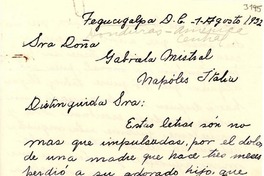 3195
Tegucigalpa D.C. 1-Agosto 1952
Sra Doña
Gabriela Mistral
Napòles Italia
Distinguida Sra:
Estas letras són no
mas que impulsadas, por el dolor
de una madre que hace tres meses
perdió a su adorado hijo, que